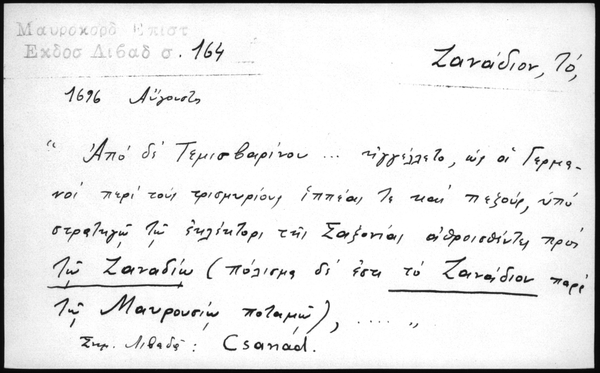 Μαυροκορδ Επιστ
Εκδοσ Λιβαδ σ. 164
Ζανάδιον, τό,
1696 Αὔγουστς
“ Ἀπό δέ Τεμισβαρίνου ... ἠγγέλλετο, ὡς οἱ Γερμα-
νοί περί τούς τρισμυρίους ἱππέας τε καί πεζούς, ὑπό
στρατηγῷ τῷ ἐκλέκτορι τῆς Σαξονίας ἀθροισθέντες πρός
τῷ Ζαναδίῳ (πόλισμα δέ ἐστι τό Ζανάδιον παρά
τῷ Μαυρουσίῳ ποταμῷ), ..... ”
Σημ. Λιβαδᾶ : Csanád.